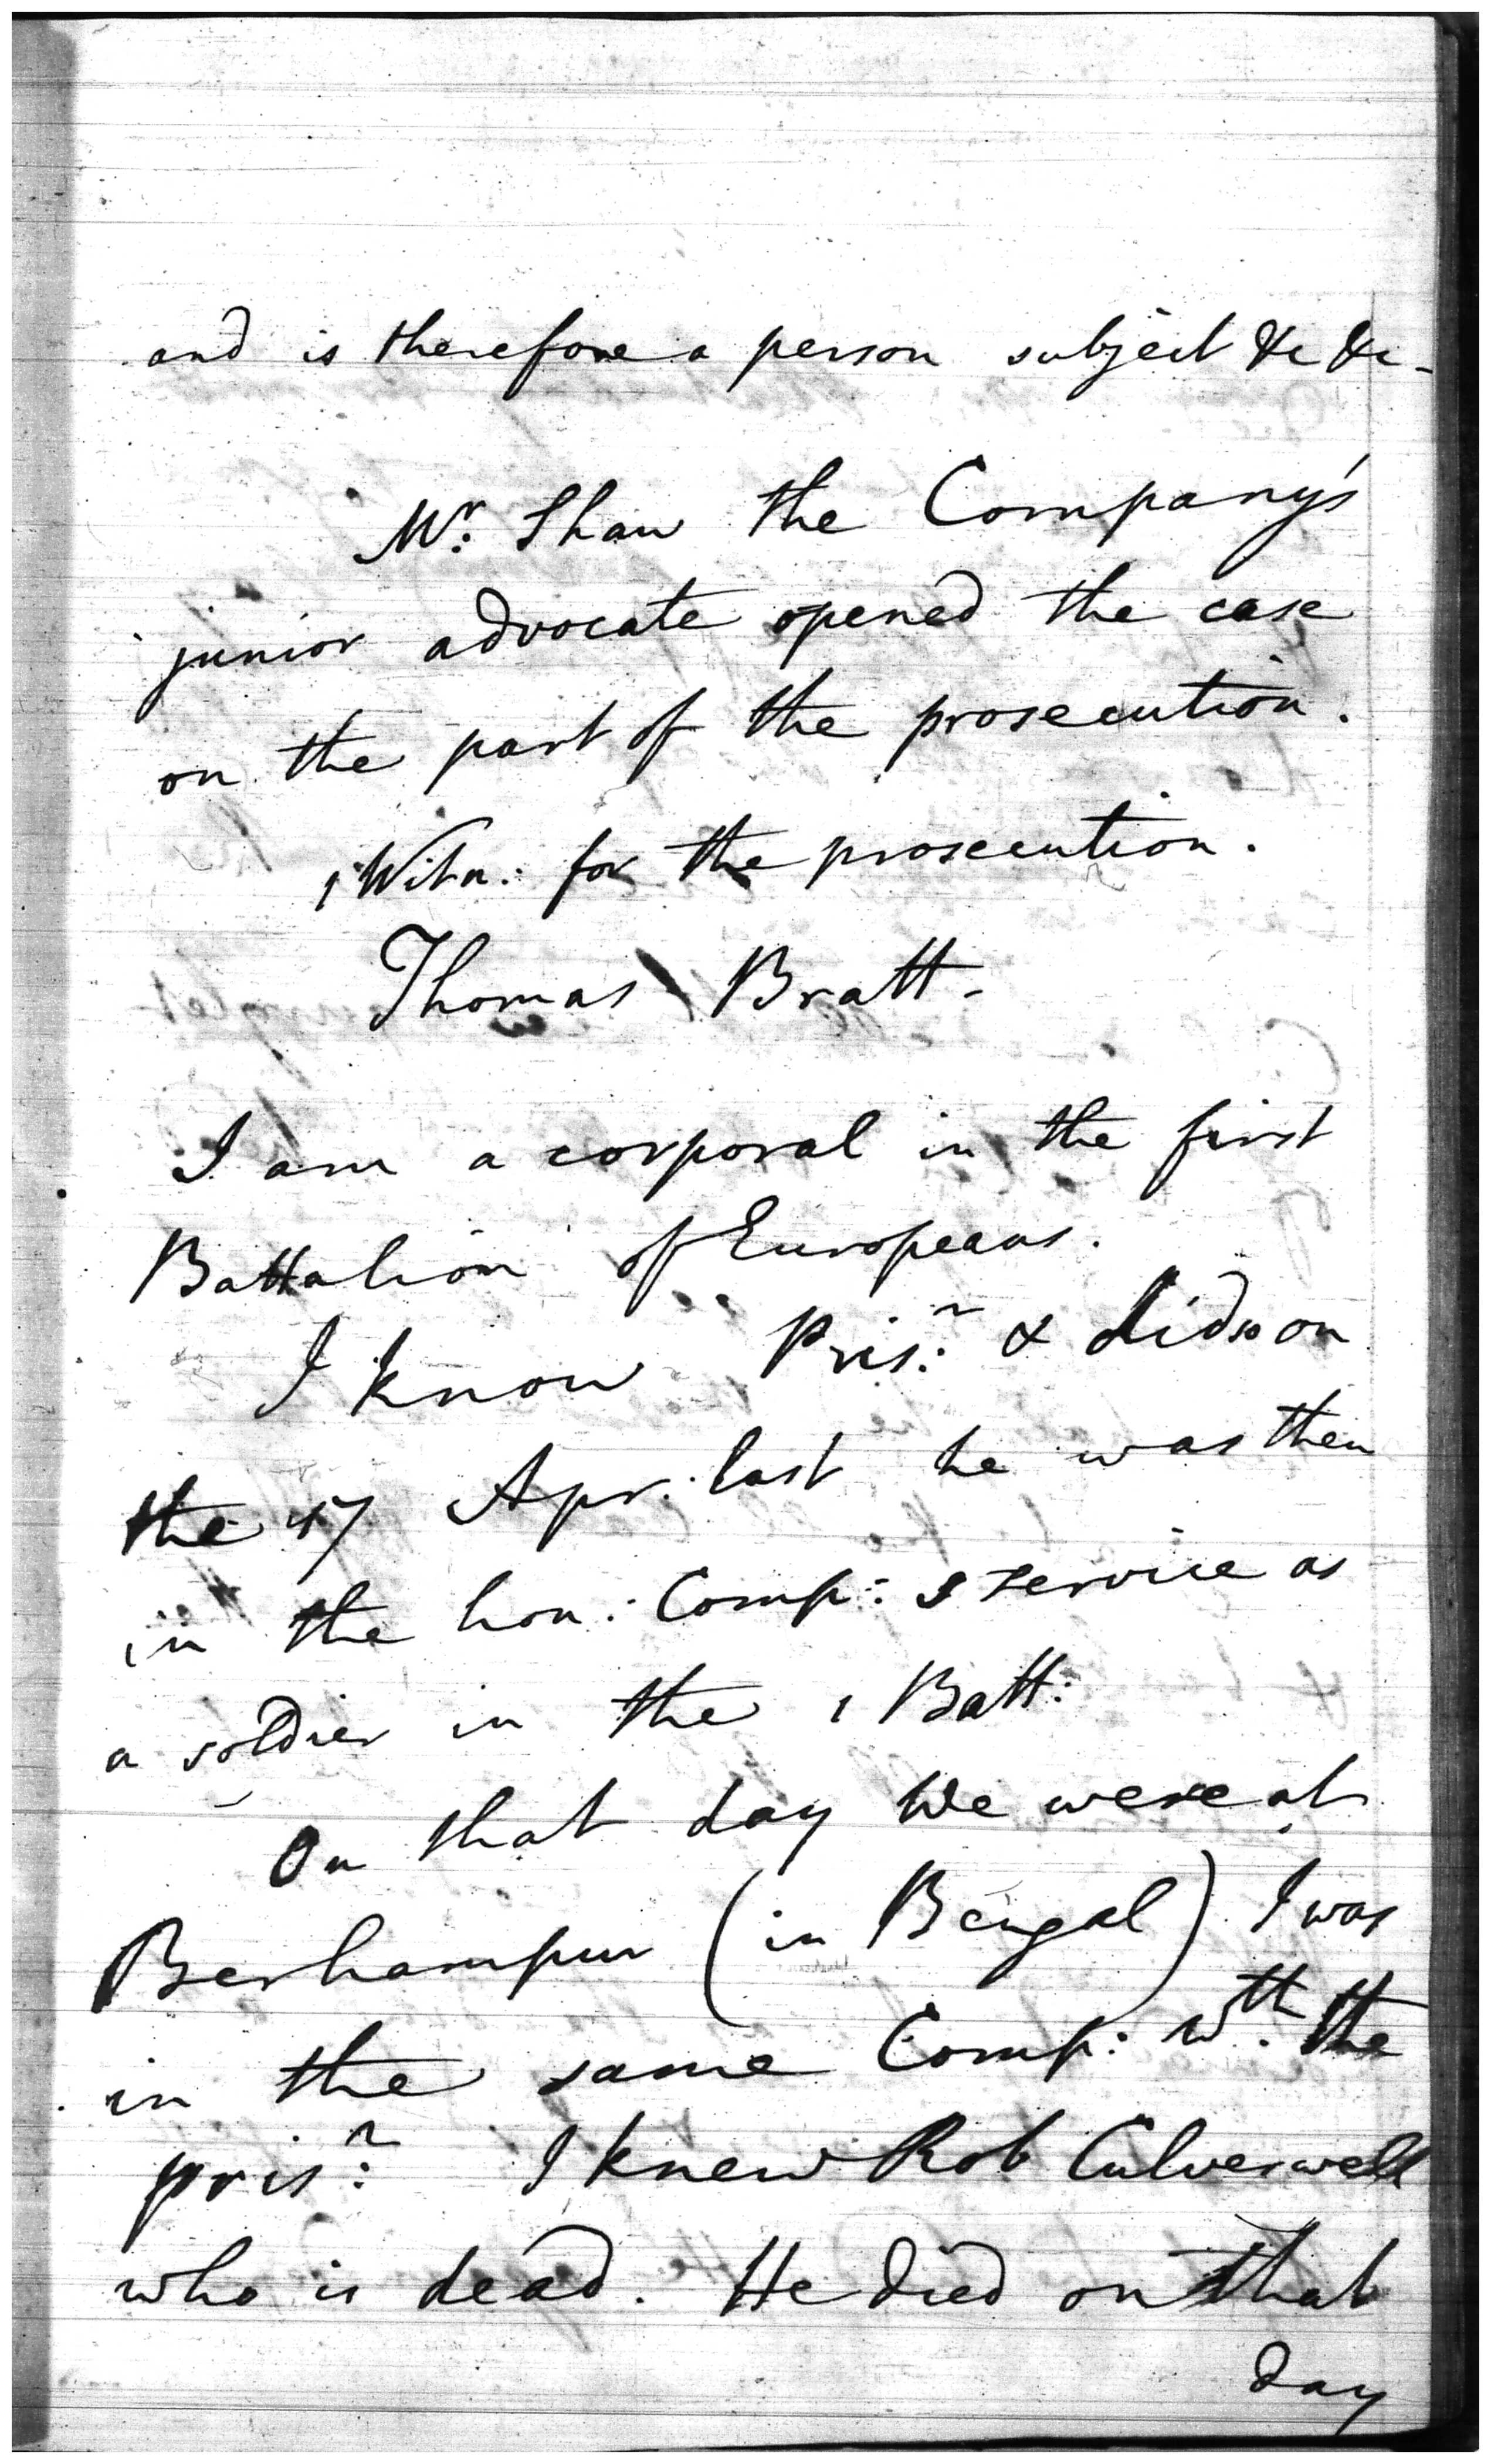 and is therefore a person subject &c &c -
Mr: Shaw the Company's
junior advocate opened the case
on the part of the prosecution.
1 Witn: for the prosecution.
Thomas Bratt -
I am a corporal in the first
Battalion of Europeans.
I know Prisr: & did so on
the 17 Apr: last he was then
in the hon: Comp: s service as
a soldier in the 1 Batt:
On that day We were at
Berhampur (in Bengal) I was
in the same Comp: wth. the
prisr: I knew Rob Culverwell
who is dead. He died on that
day